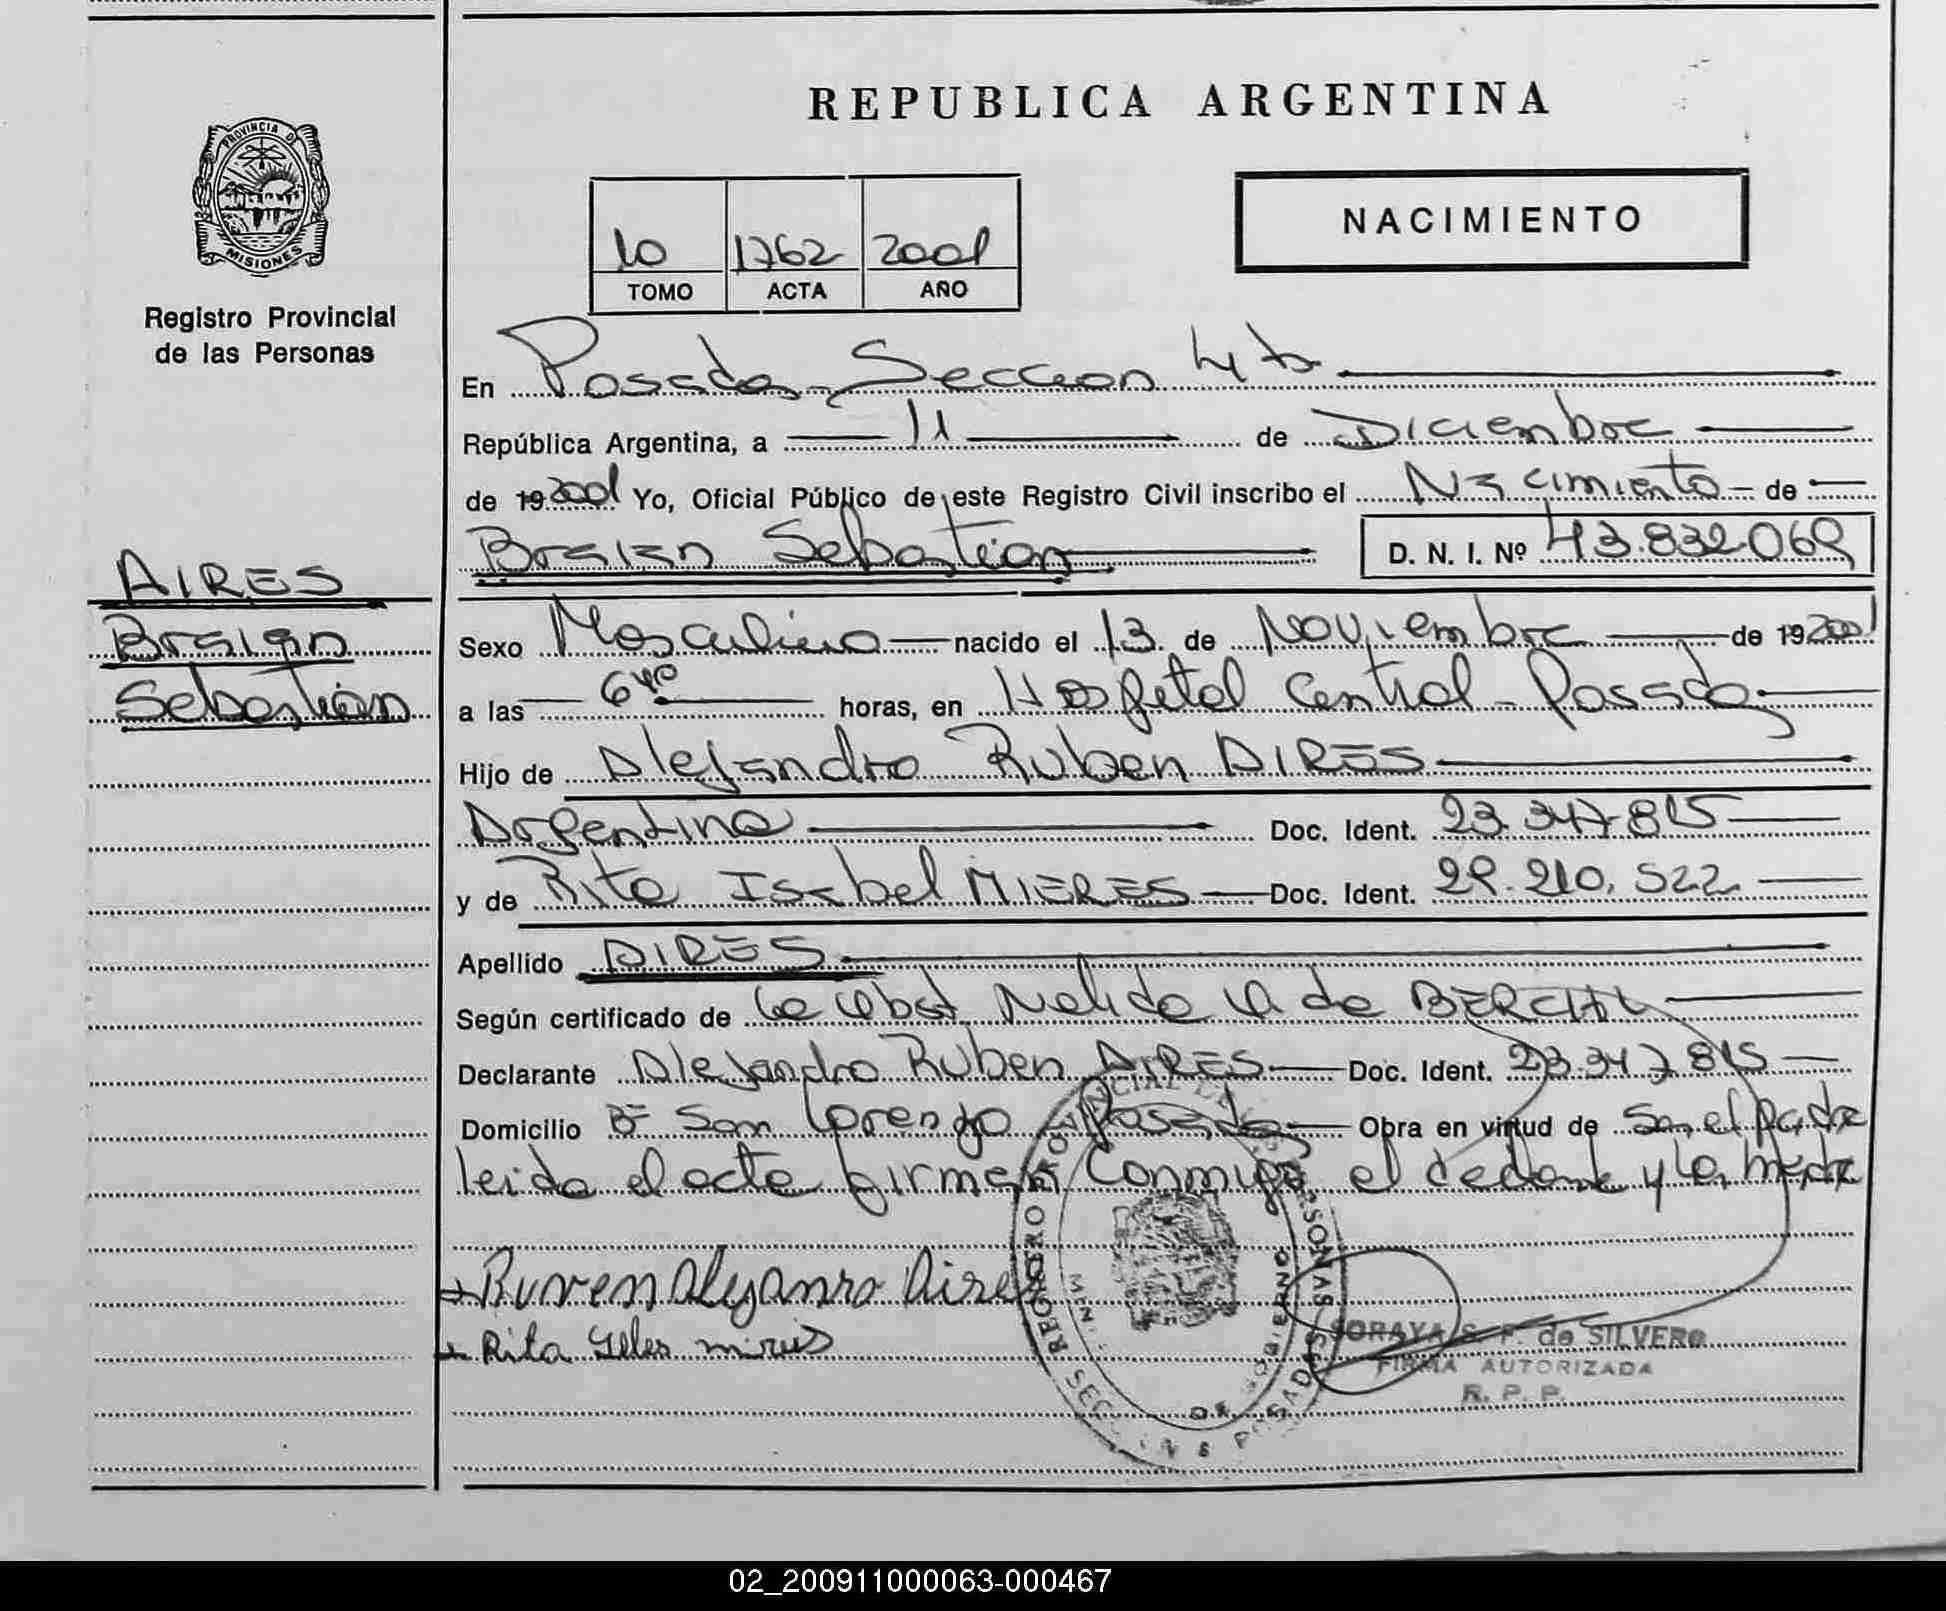 REPUBLICA ARGENTINA
PROVINCIA DE MISIONES
Registro Provincial
de las Personas
NACIMIENTO
10 1762 2001
TOMO ACTA AÑO
En Posadas Seccion 4ta
República Argentina, a 11 de Diciembre
de 192001 Yo, Oficial Público de este Registro Civil inscribo el Nacimiento de
Braian Sebastian D. N. I. Nº 43.832.069
AIRES
Braian
Sebastián
Sexo Masculino nacido el 13 de Noviembre de 192001
a las 6 40 horas, en Hospital Central - Posadas
Hijo de Alejandro Ruben AIRES
Argentino Doc. Ident. 23.347.815
y de Rita Isabel MIERES Doc. Ident. 29.210.522
Apellido AIRES
Según certificado de la Obst. Nelida de
Declarante Alejandro Ruben AIRES Doc. Ident. 23.347.815
Domicilio Bº San Lorenzo Posadas Obra en virtud de Ser el Padre
leida el acta firman conmigo el declarante y la madre
Ruven Alejanro Aires
Rita
REGISTRO PROVINCIAL DE LAS PERSONAS
POSADAS
SORAYA S. F. de SILVERO
FIRMA AUTORIZADA
R. P. P.
02_200911000063-000467